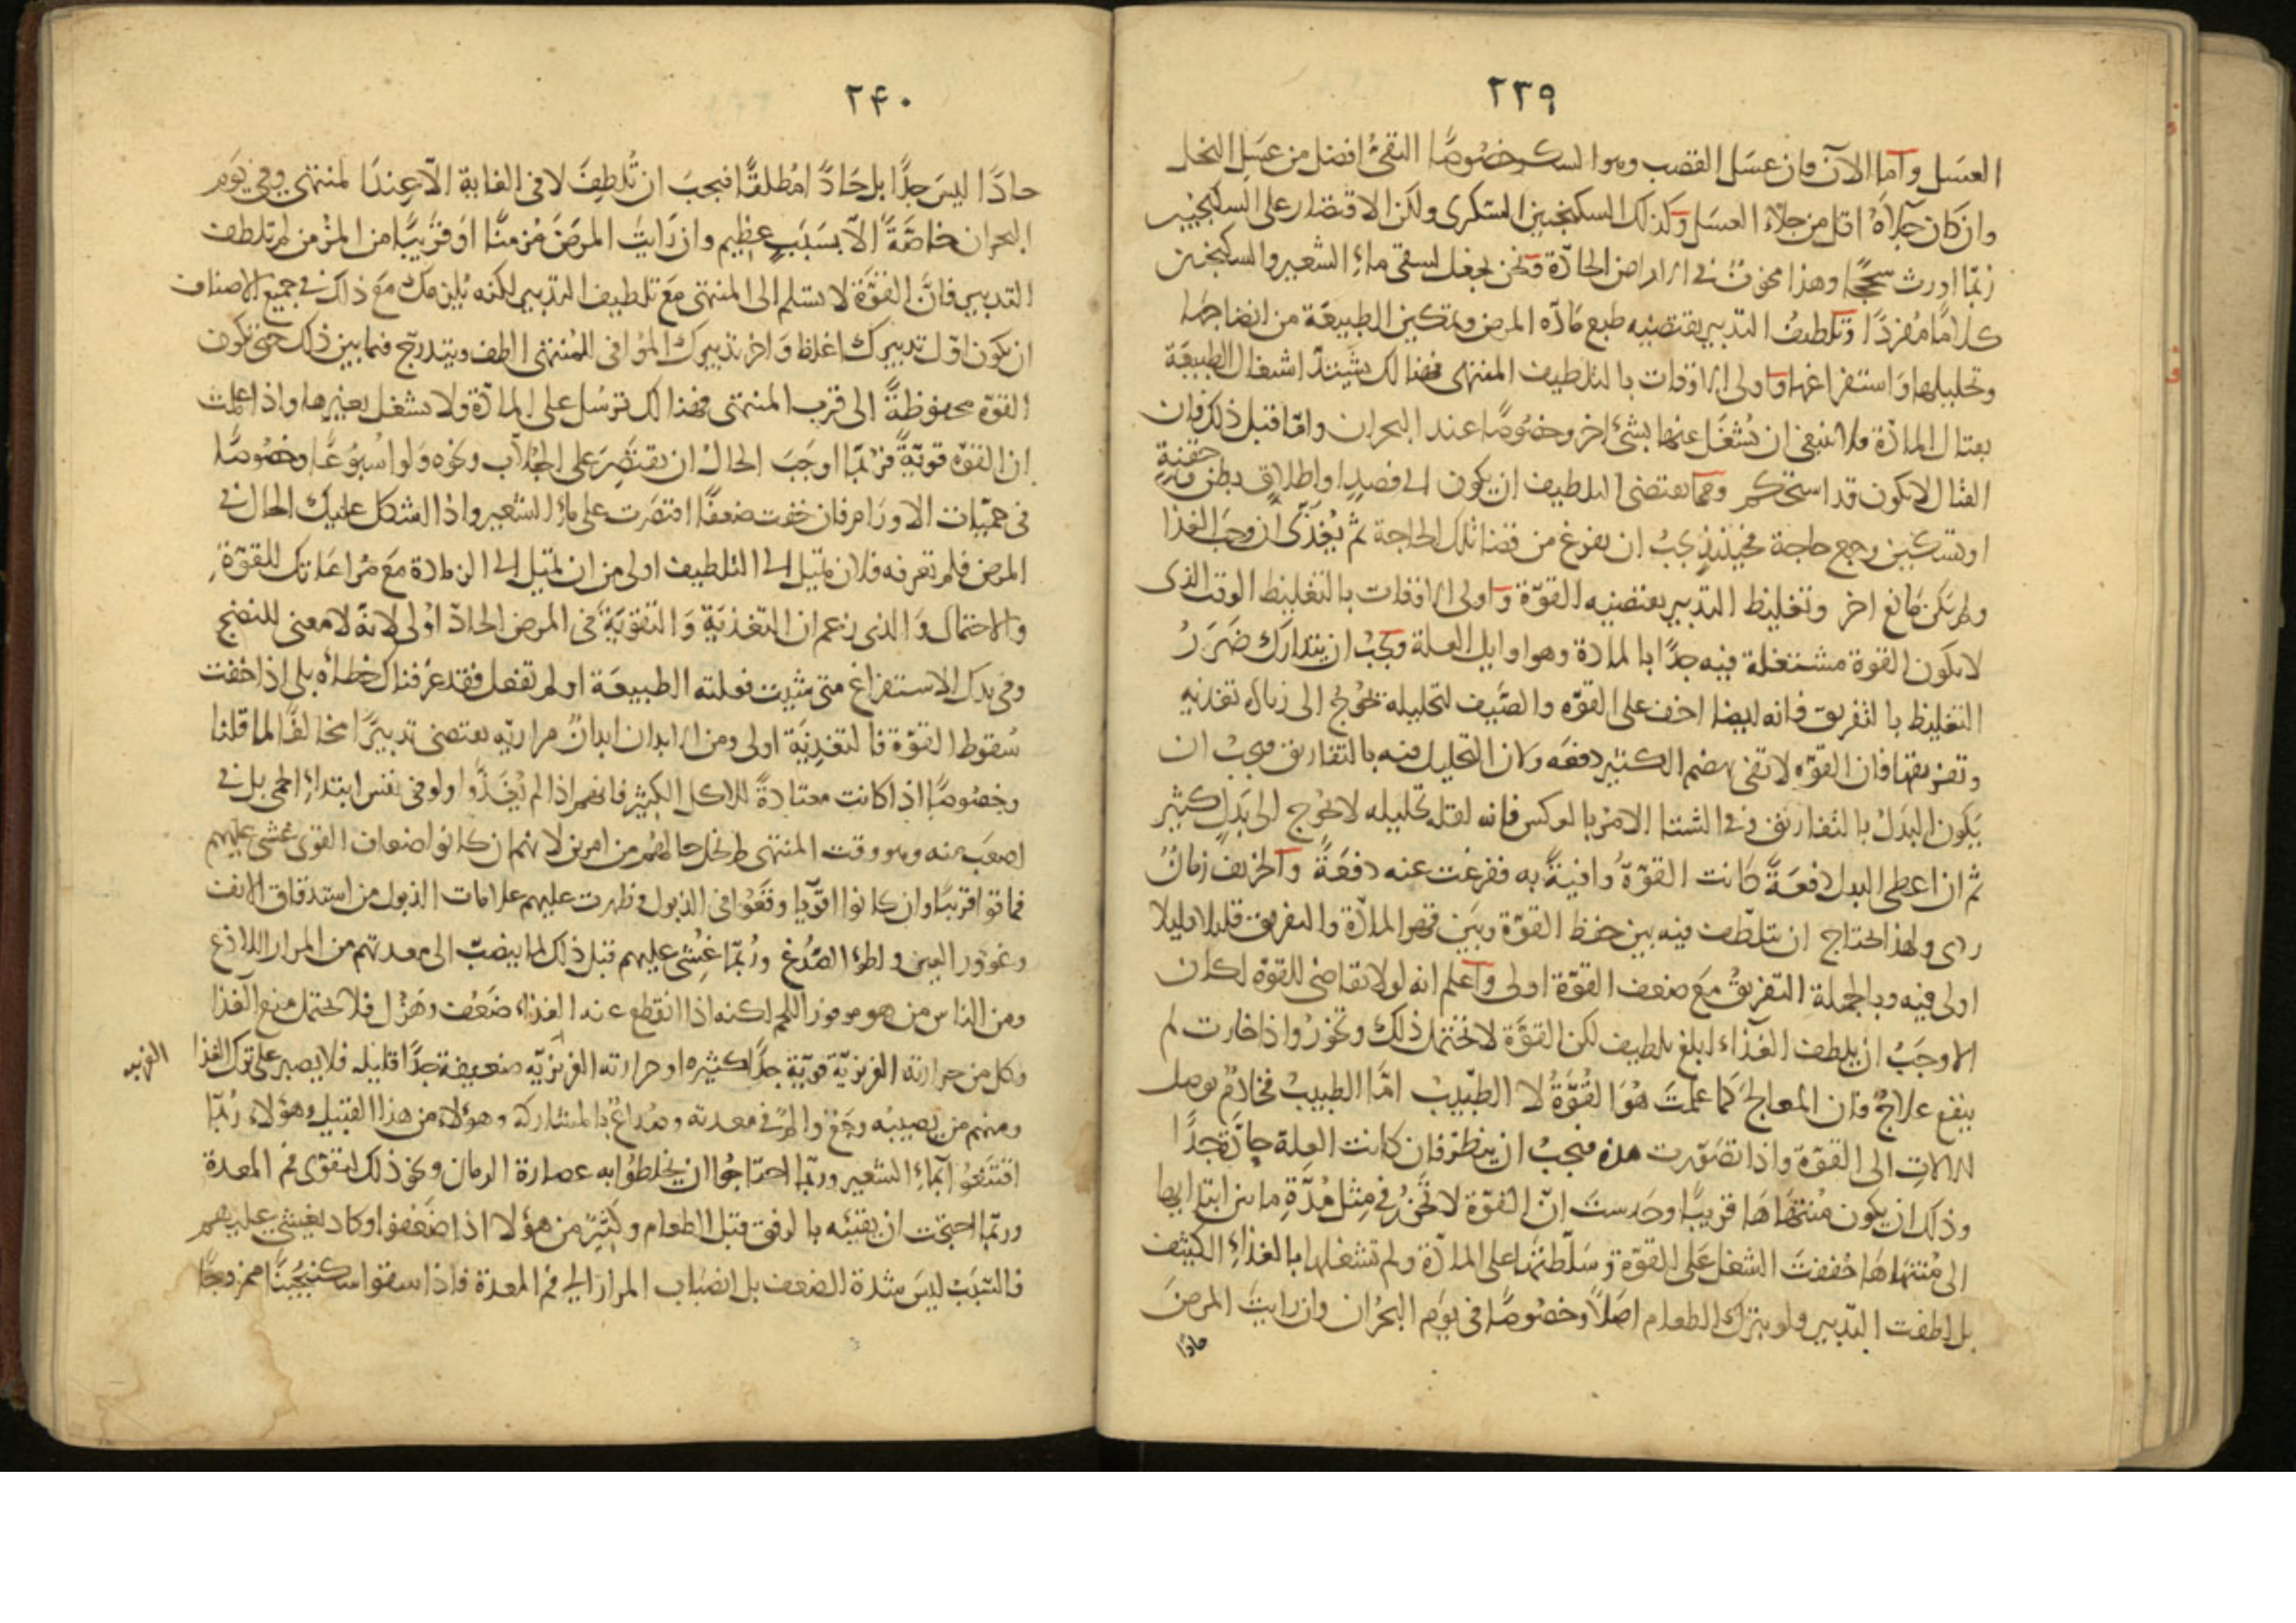 ٢٣٩
العسل وأما الآن فان عسل القصب وهو السكر خصوصًا النقيُّ افضل من عسل النحل
وان كان جلاؤه اقل من جلاء العسل وكذلك السكنجبين السكرى ولكن الاقتصار على السكنجبين
ربّما اورث سحجًا وهذا مخوف فى الامراض الحادّة ونحن نجعل لسقى ماءِ الشعير والسكنجبين
كلامًا مُفردًا وتلطيفُ التدبير يقتضيه طبع مادّه المرض وتمكين الطبيعة من انضاجها
وتحليلها واستفراغها واولى الاوقات بالتلطيف المنتهى فهنالك يشتدّ اشتغال الطبيعَة
بقتال المادّة فلا ينبغى ان تُشغَل عنها بشئ اخر وخصُوصًا عند البحران وامّا قبل ذلك فان
القتال لا يكون قد استحكم ومما يقتضى التلطيف ان يكون الى فصدٍ او اطلاقِ بطن او حقنةٍ
او تسكين وجع حاجة فحينئذٍ يجبُ ان يفرغ من قضا تلك الحاجة ثم يُغذّى ان وجب الغذا
ولم يكن مانع اخر وتغليظ التدبير يقتضيه القوّة واولى الاوقات بالتغليظ الوقت الذى
لا يكون القوة مشتغلة فيه جدًا بالمادة وهو اوايل العلة ويجبُ ان يتدارك ضَرَرُ
التغليظ بالتفريق فانه ايضا اخف على القوّه والصّيف لتحليله يحُوج الى زيادة تغذيه
وتفريقها فان القوّه لا تفى بهضم الكثير دفعَه ولان التحليل فيه بالتفاريق فيجبُ ان
يَكون البَدلُ بالتفاريق وفى الشتا الامرُ بالعكس فانه لقله تحليله لا يحُوج الى بَدلٍ كثير
ثم ان اعطى البدل دفعَةً كانت القوّةُ وافيةً به ففرغت عنه دفعَةً والخريف زمانٌ
ردى ولهذا يحتاج ان يتلطّف فيه بين حفظ القوّة وبَين قهر المادّة والتفريق قليلا قليلا
اولى فيه وبالجملة التفريقُ مَع ضعف القوّة اولى واعلم انه لولا تقاضى للقوّه لكان
الاوجَبُ ان يلطف الغذاء ابلغ تلطيف لكن القوّة لا تحتمل ذلك وتخورُ واذا خارت لم
ينفع علاجٌ فان المعالج كَما علمتَ هُوَ القُوَّةُ لا الطّبيب امّا الطبيبُ فخادمٌ يوصل
الالاتِ الى القوّة واذا تصَوّرت هذه فيجبُ ان ينظرَ فان كانت العِلة حادَّةً جدًا
وذلك ان يكون مُنتهاهَا قريبًا وحَدستَ انّ القوّة لا تَخُورُ فى مِثل مُدَّةِ مابين ابتدايها
الى مُنتهاهَا خُففتَ الشغل عَلى القوّة وسَلّطتها على المادّة ولم تشغلها بالغذاءِ الكثيف
بل لطفت التدبير ولو بترك الطعام اصَلاً وخصُوصًا فى يوم البحرُان وان رايتَ المرضَ
حادًا
٢۴٠
حادًا ليسَ جدًا بل حَادًا مُطلقًا فيجبَ ان تُلطِفَ لا فى الغاية الاّ عِندَ المنتهى وفى يَوَم
البحران خاصَّةً الاّ بسَبَبٍ عظِيم وان رَايتَ المرضَ مُزمنًا اوَ قرُيبًا من المزُمن لم تلطف
التدبير فانَّ القوَّة لا تسلم الى المنتهى مَع تلطيف التدبير لكنه يَلزمكَ مَع ذلك فى جميع الاصناف
ان يكون اوّل تدبيرك اغلظ وَاخر تدبيرك المُوافى للمُنتهى الطف ويتدرّج فيما بين ذلك حَتى تكون
القوّه محفوظةً الى قرب المنتهى فهنالك ترُسَل على المادّة ولا تشغل بغيرها واذا علمت
ان القوّه قويّةً فرُبّما اوجَبَ الحالُ ان يقتصِرَ على الجُلّاب ونحوه وَلو اسُبوُعًا وخصُوصًا
فى حمَيّات الاورَام فان خفت ضعفًا اقتصَرت على ماء الشعير واذا اشكل عليك الحال فى
المرض فلم تعرفه فلان تميل الى التلطيف اولى من ان تميل الى الزيادة مَع مُراعَاتك للقوّة
والاحتمال وَالذى زعَم ان التغذيَة وَالتقويَة فى المرض الحادّ اوُلى لانهّ لا معنى للنضج
وفى يدك الاستفراغ متى شِئت فعلته الطبيعَة او لم تفعل فقد عرَفناك خطاءه بلى اذا خفت
سُقوط القوّة فالتغذِيَة اولى ومن الابدان ابدانٌ مراريّه يقتضى تدبيرًا مخالفًا لما قلنا
وخصُوصًا اذا كانت معتادةً للاكل الكثير فانهم اذا لم يُغَذَّوا ولو فى نفس ابتداءِ الحمى بل فى
اصعَب منه وهو وقت المنتهى لم يخل حالهم من امرين لانهم ان كانوا ضعاف القوى غشى عليهم
فماتوا قريبًا وان كانوا اقوّيا وقعُوا فى الذبول وظهرت عليهم علامات الذبول من استدقاق الانف
وغوور العين ولطوء الصُدغ ورُبّما غِشُى عليهم قبل ذلك لما ينصبّ الى معدتهم من المرار اللاذع
ومن الناس من هو موفور اللحم لكنه اذا انقطع عنه الغذاء ضَعُف وهَزُل فلا يحتمل منع الغذا
وكل من حرارته الغريزيّة قويّة جدًا كثيره او حرارته الغريزيّه ضعيفة جدًا قليله فلا يصبر على ترك الغذا
ومنهم من يصيبُه وجَعٌ والمٌ فى معدته وصُداعٌ بالمشاركة وهؤلاءِ من هذا القبيل وهؤلاءِ رُبّما
اقتنعُوا بماءِ الشعير وربّما احتاجُوا ان يخلطوُا به عصارة الرمان ونحو ذلك ليقوّى فم المعدة
وربّما احتجت ان يقيّئه بالرفق قبل الطعام وكثيرٌ من هؤلا اذا ضَعُفوا وكاد يغشى عليهم
فالسّبَبُ ليسَ شدة الضعف بل انصباب المرار الى فم المعدة فاذا سقوا سكنجبيَنًا ممزوجًا